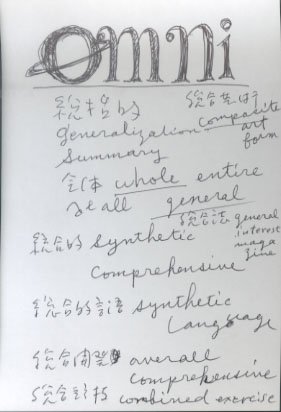 Omni
総括的 総合芸術
generalization composite
Summary art form
全体 whole entire
all general
総合誌 general interest magazine
総合的 synthetic
comprehensive
総合的言語 synthetic
language
総合開発 overall
comprehensive
総合競技 combined exercise